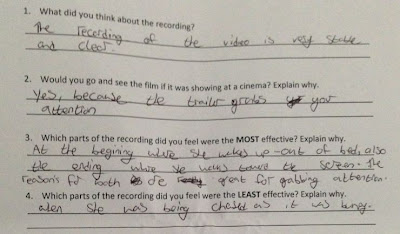 1. What did you think about the recording?
The recording of the video is very stable
and clear.
2. Would you go and see the film if it was showing at a cinema? Explain why.
Yes, because the trailer grabs your
attention
3. Which parts of the recording did you feel were the MOST effective? Explain why.
At the begining where she wakes up out of bed, also
the ending where she walks toward the screen. The
reasons for both are great for gabbing attention.
4. Which parts of the recording did you feel were the LEAST effective? Explain why.
when she was being chased as it was